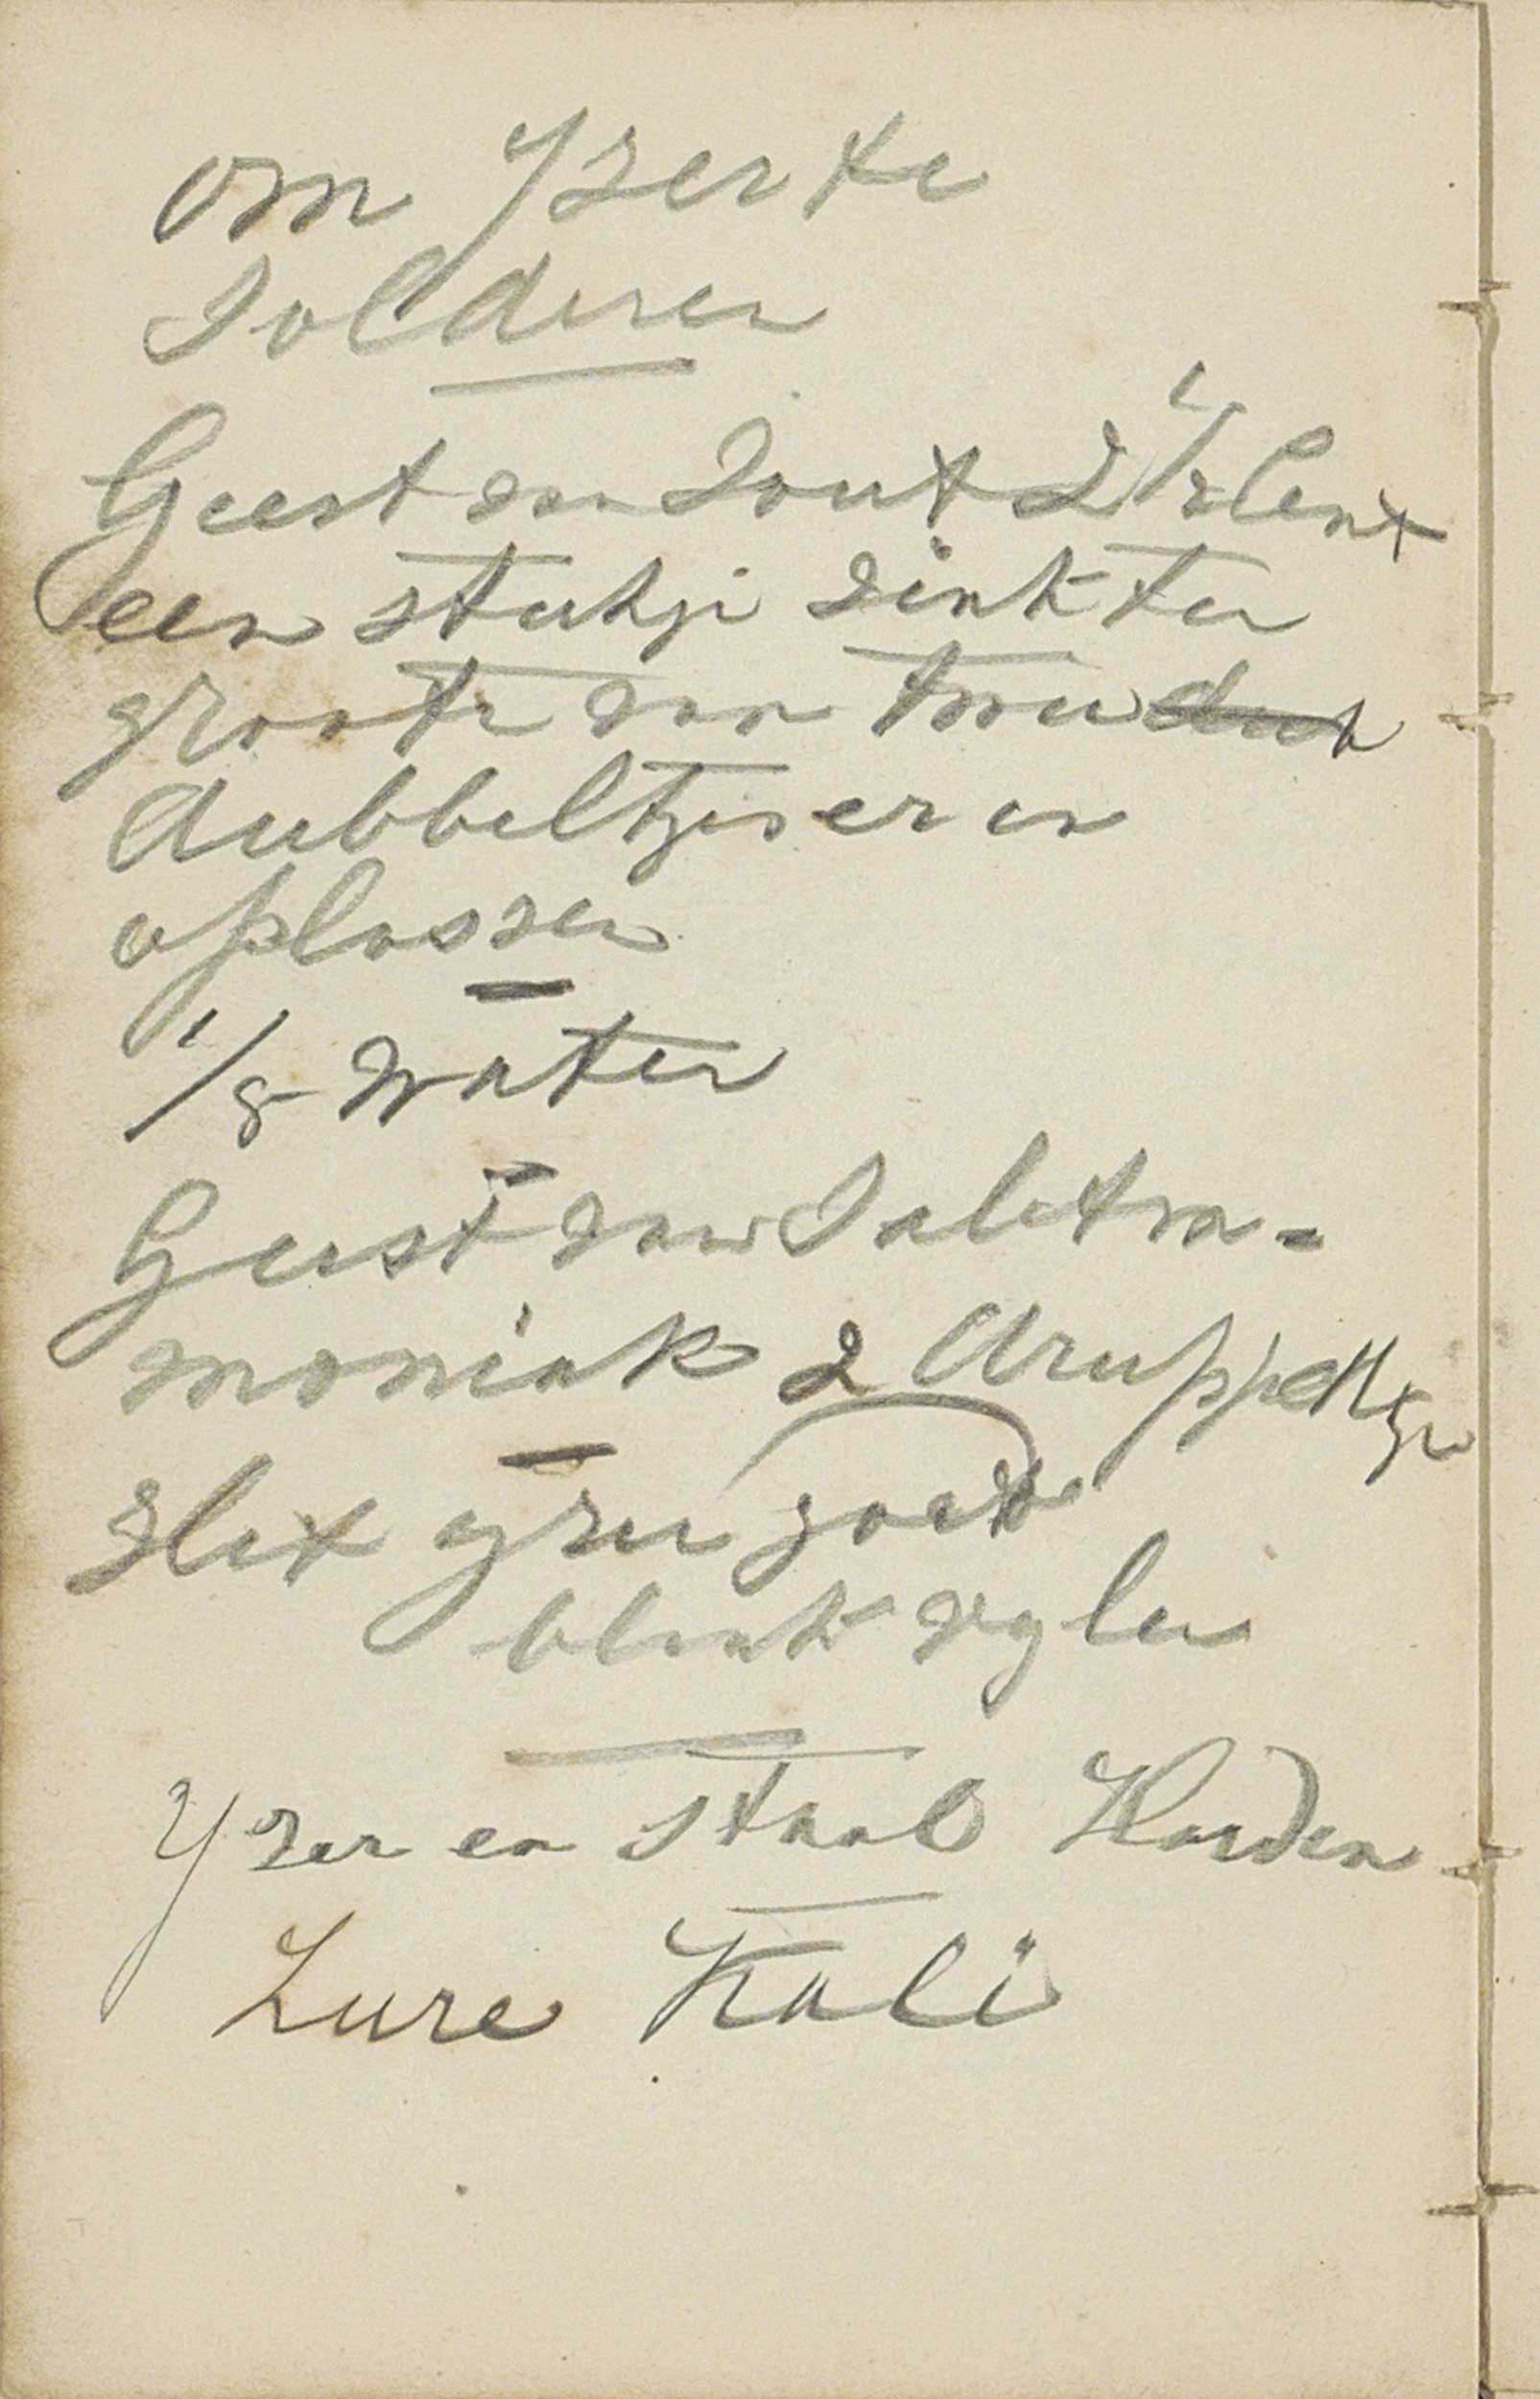 om Yzer te
Solderen
Geest van Zout 2 1/2 Cent
een stukje zink ter
groote van twee
dubbeltjes er in
oplossen
1/8 water
Geest van Salam-
moniak 2 druppeltjes
Het yzer goed
blank vylen
Yzer en Staal Harden
Zure Kali